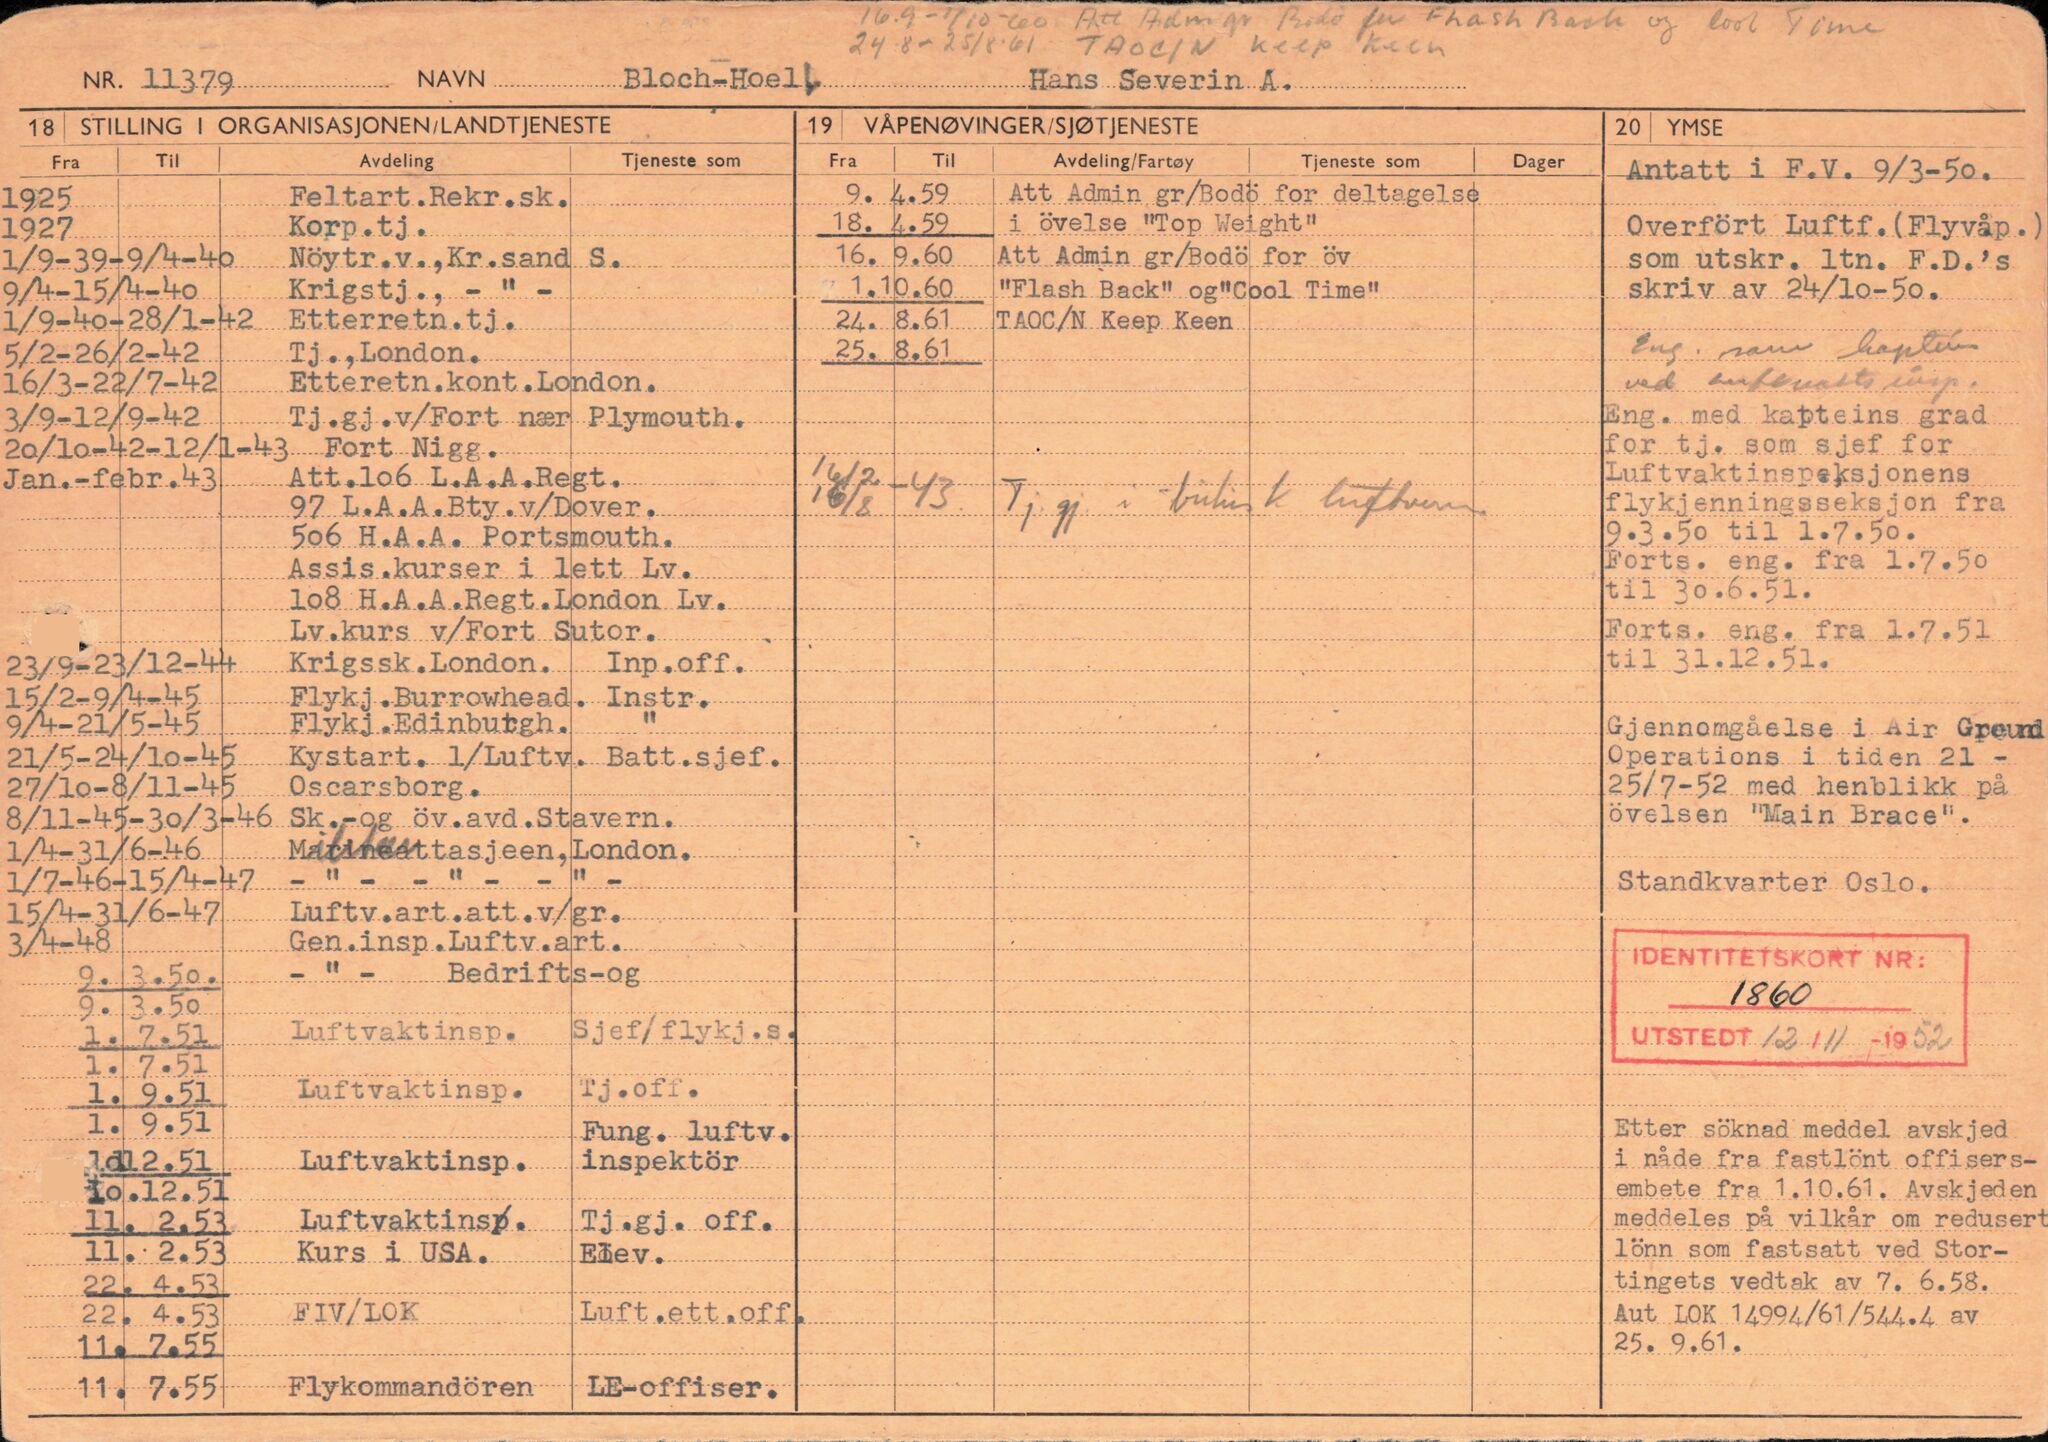 16.9 - 1/10-60 Att Admgr Bodö for Fhash Back og Cool Time
24 8 - 25/8-61 TAOC/N Keep Keen
NR. 11379 NAVN Bloch-Hoell Hans Severin A.
18 STILLING I ORGANISASJONEN/LANDTJENESTE
Fra Til Avdeling Tjeneste som
1925 Feltart.Rekr.sk.
1927 Korp.tj.
1/9-39-9/4-40 Nöytr.v.,Kr.sand S.
9/4-15/4-40 Krigstj., - " -
1/9-40-28/1-42 Etterretn.tj.
5/2-26/2-42 Tj.,London.
16/3-22/7-42 Etteretn.kont.London.
3/9-12/9-42 Tj.gj.v/Fort nær Plymouth.
20/10-42-12/1-43 Fort Nigg.
Jan.-febr.43 Att.106 L.A.A.Regt.
97 L.A.A.Bty.v/Dover.
506 H.A.A. Portsmouth.
Assis.kurser i lett Lv.
108 H.A.A.Regt.London Lv.
Lv.kurs v/Fort Sutor.
23/9-23/12-44 Krigssk.London. Inp.off.
15/2-9/4-45 Flykj.Burrowhead. Instr.
9/4-21/5-45 Flykj.Edinburgh. "
21/5-24/10-45 Kystart. 1/Luftv. Batt.sjef.
27/10-8/11-45 Oscarsborg.
8/11-45-30/3-46 Sk.-og öv.avd.Stavern.
1/4-31/6-46 Marineattasjeen,London.
1/7-46-15/4-47 - " - - " - - " -
15/4-31/6-47 Luftv.art.att.v/gr.
3/4-48 Gen.insp.Luftv.art.
9. 3.50. - " - Bedrifts-og
9. 3.50
1. 7.51 Luftvaktinsp. Sjef/flykj.s.
1. 7.51
1. 9.51 Luftvaktinsp. Tj.off.
1. 9.51
Fung. luftv.
12.51 Luftvaktinsp. inspektör
10.12.51
11. 2.53 Luftvaktinsp. Tj.gj. off.
11. 2.53 Kurs i USA. Elev.
22. 4.53
22. 4.53 FIV/LOK Luft.ett.off.
11. 7.55
11. 7.55 Flykommandören LE-offiser.
19 VÅPENØVINGER/SJØTJENESTE
Fra Til Avdeling/Fartøy Tjeneste som Dager
9. 4.59 Att Admin gr/Bodö for deltagelse
18. 4.59 i övelse "Top Weight"
16. 9.60 Att Admin gr/Bodö for öv
1.10.60 "Flash Back" og"Cool Time"
24. 8.61 TAOC/N Keep Keen
25. 8.61
16/2
16/8 -43 Tj gj i britisk luftvern
20 YMSE
Antatt i F.V. 9/3-50.
Overfört Luftf.(Flyvåp.)
som utskr. ltn. F.D.'s
skriv av 24/10-50.
Eng. som kaptein
ved luftvaktsinsp.
Eng. med kapteins grad
for tj. som sjef for
Luftvaktinspeksjonens
flykjenningsseksjon fra
9.3.50 til 1.7.50.
Forts. eng. fra 1.7.50
til 30.6.51.
Forts. eng. fra 1.7.51
til 31.12.51.
Gjennomgåelse i Air Ground
Operations i tiden 21 -
25/7-52 med henblikk på
övelsen "Main Brace".
Standkvarter Oslo.
IDENTITETSKORT NR:
1860
UTSTEDT 12/11 -1952
Etter söknad meddel avskjed
i nåde fra fastlönt offisers-
embete fra 1.10.61. Avskjeden
meddeles på vilkår om redusert
lönn som fastsatt ved Stor-
tingets vedtak av 7. 6.58.
Aut LOK 14994/61/544.4 av
25. 9.61.